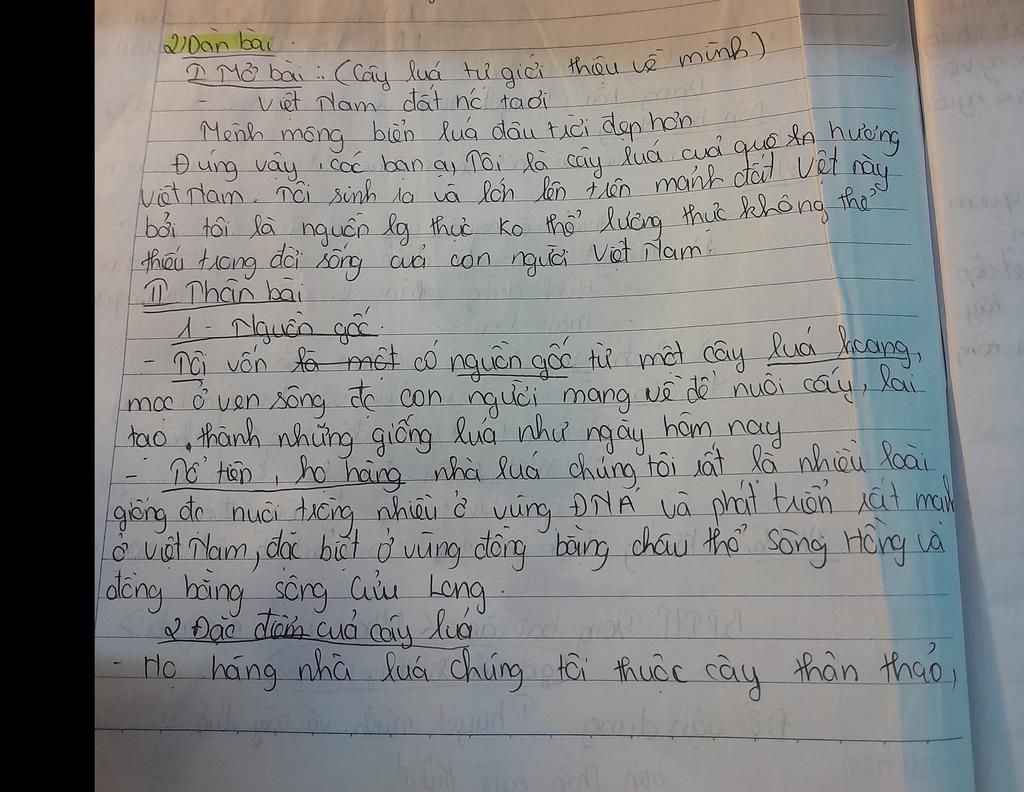 2) Dàn bài.
I Mở bài: (Cây luá tự giới thiệu về mình)
- Việt Nam đất nc ta ơi
Mênh mông biển luá đâu trời đẹp hơn
Đúng vậy, các bạn ạ, Tôi là cây luá cuả quê hương
Việt Nam. Tôi sinh ra và lớn lên trên mảnh đất Việt này
bởi tôi là nguồn lg thực ko thể lương thực không thể
thiếu trong đời sống cuả con người Việt Nam.
II Thân bài
1 - Nguồn gốc.
- Tôi vốn là một có nguồn gốc từ một cây luá hoang,
mọc ở ven sông đc con người mang về để nuôi cấy, lai
tạo, thành những giống luá như ngày hôm nay
- Tổ tiên, họ hàng nhà luá chúng tôi rất là nhiều loài
giống đc nuôi trồng nhiều ở vùng ĐNÁ và phát triển rất mạnh
ở Việt Nam, đặc biệt ở vùng đồng bằng châu thổ Sông Hồng và
đồng bằng sông Cửu Long.
2 Đặc điểm cuả cây luá
- Họ hàng nhà luá chúng tôi thuộc cây thân thảo,